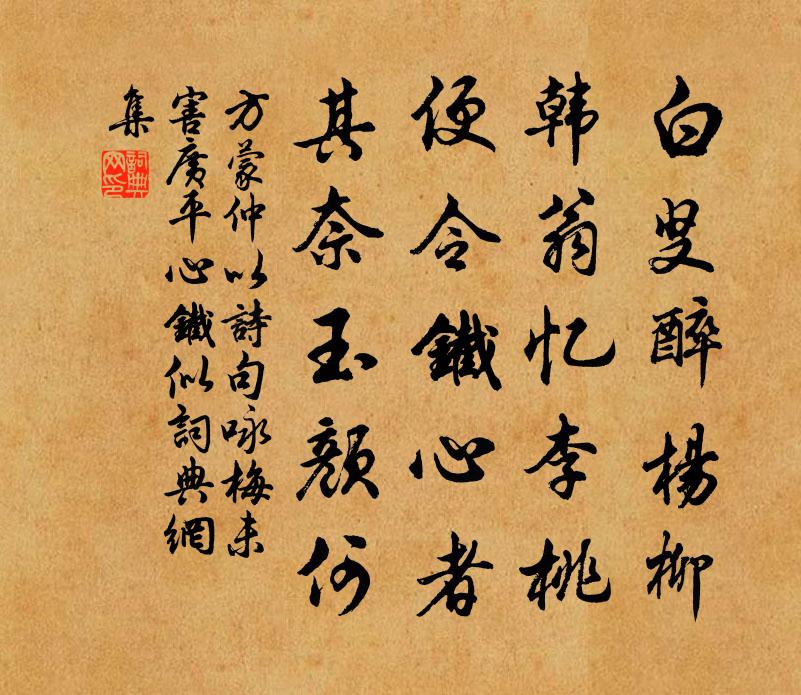 白叟醉楊柳
韩翁忆李桃
便令鐵心者
其奈玉顔何
方蒙仲以詩句咏梅未
害廣平心鐵似詞典網
集
詞典
网印